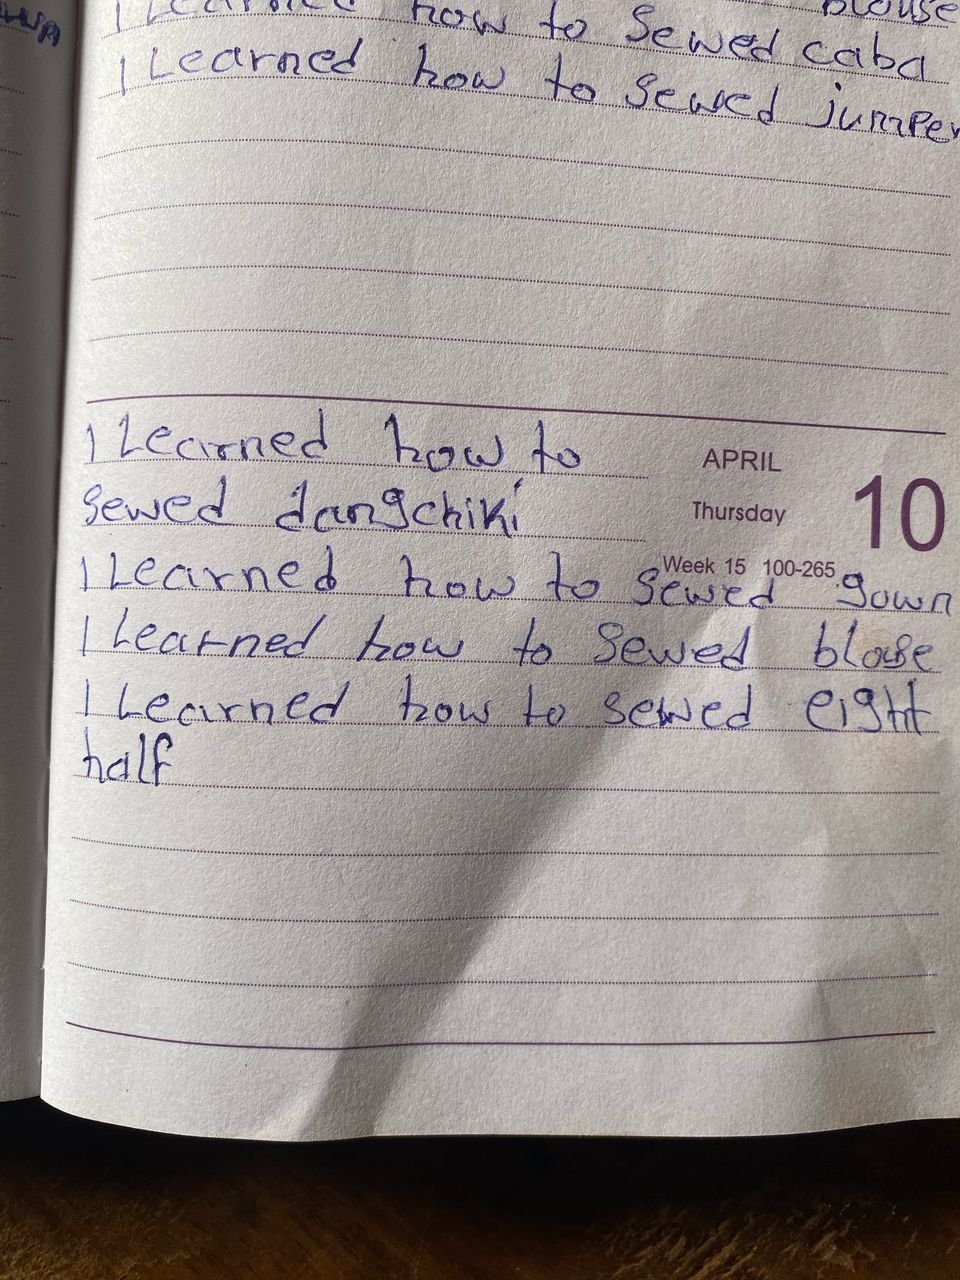 blouse
I Learned how to sewed caba
I Learned how to sewed jumper
I Learned how to
sewed dangchiki
APRIL
Thursday
10
Week 15 100-265
I Learned how to sewed gown
I Learned how to sewed blouse
I Learned how to sewed eight
half